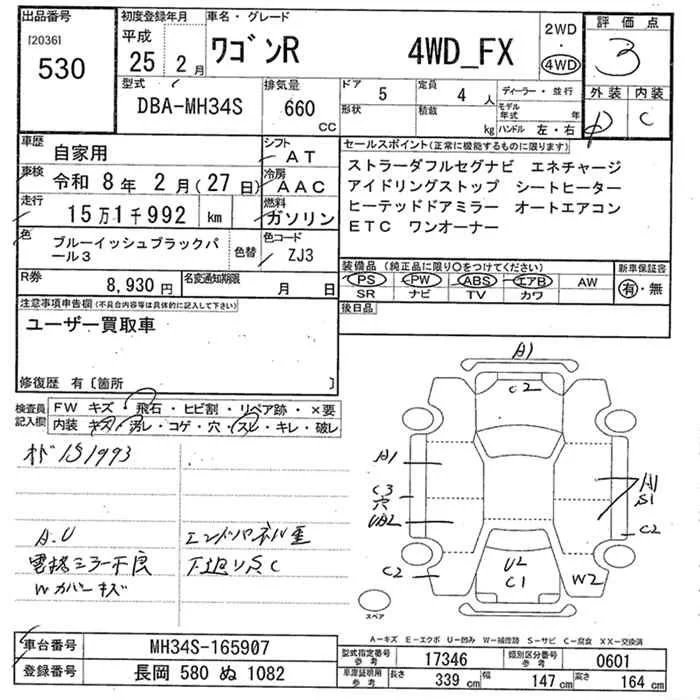 出品番号
[20361
530
初度登録年月
平成
25 2月
車名・グレード
ワゴンR 4WD_FX
2WD
・
4WD
評価点
3
外装 内装
D C
型式
DBA-MH34S
排気量
660
CC
ドア
5
定員
4 人
形状
積載
kg
ディーラー・並行
モデル年式 年
ハンドル 左・右
車歴
自家用
シフト
AT
車検
令和 8年 2月(27日)
冷房
AAC
走行
15万1千992 km
燃料
ガソリン
色
ブルーイッシュブラックパ
ール3
色替
色コード
ZJ3
R券
8,930円
名変通知期限
月 日
セールスポイント(正常に機能するものに限ります)
ストラーダフルセグナビ エネチャージ
アイドリングストップ シートヒーター
ヒーテッドドアミラー オートエアコン
ETC ワンオーナー
装備品(純正品に限り○をつけてください)
PS PW ABS エアB AW
SR ナビ TV カワ
新車保証書
有・無
後日品
注意事項申告欄(不具合内容等は具体的に記入して下さい)
ユーザー買取車
修復歴 有〔箇所 〕
検査員
記入欄
FW キズ・飛石・ヒビ割・リペア跡・×要
内装 キズ・汚レ・コゲ・穴・スレ・キレ・破レ
A.U
電格ミラー不良
Wカバーキズ
A1
C2
A1
C3
穴
UA2
C2
A1
S1
C2
U2
C1
W2
スペア
A-キズ E-エクボ U-凹み W-補修跡 S-サビ C-腐食 XX-交換済
車台番号
MH34S-165907
登録番号
長岡 580 ぬ 1082
型式指定番号
参考
17346
類別区分番号
参考
0601
車庫証明用
参考
長さ
339 cm
幅
147 cm
高さ
164 cm